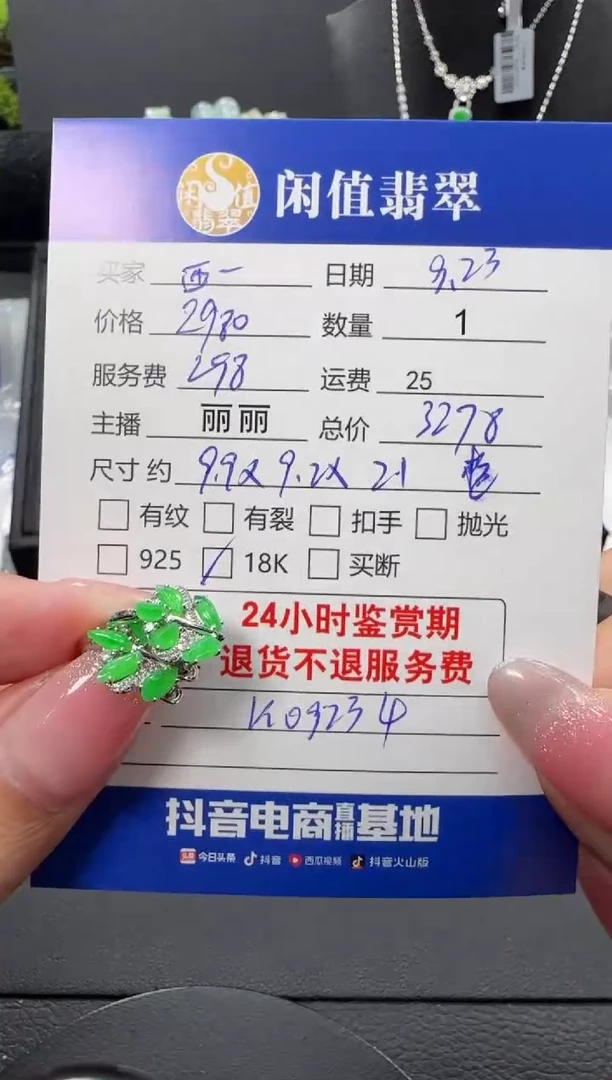 闲值翡翠
闲值翡翠
买家 西一 日期 9.23
价格 2980 数量 1
服务费 298 运费 25
主播 丽丽 总价 3278
尺寸 约 9.9x9.2x21
有纹 有裂 扣手 抛光
925 18K 买断
24小时鉴赏期
退货不退服务费
K09234
抖音电商直播基地
头条 今日头条 抖音 西瓜视频 抖音火山版